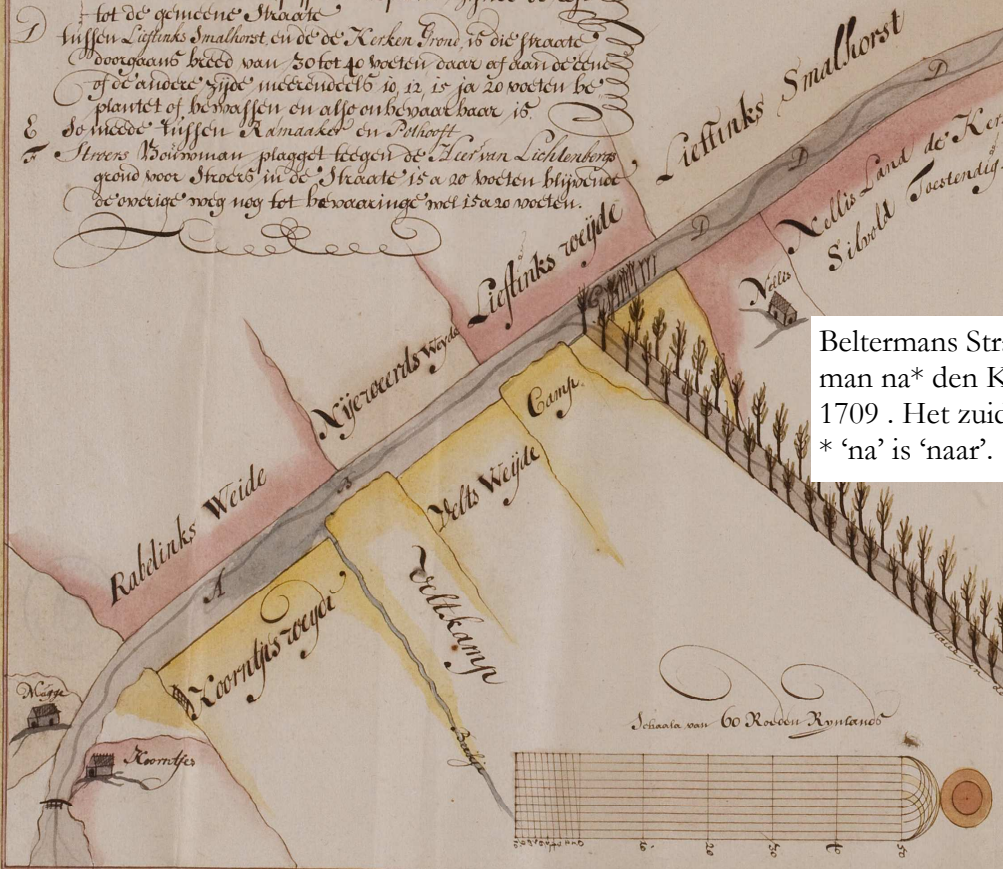 tot de gemeene Straate
D tussen Lieftinks Smalhorst, en de de Kerken Grond, is die straate
doorgaans breed van 30 tot 40 voeten daar af aan de eene
of de andere zijde meerendeels 10, 12, 15 ja 20 voeten be
plantet of bewassen en also onbevaarbaar is.
E So meede tussen Ramaaker en Pothooft
F Stroers Bouwman plagget teegen de Heer van Lichtenbergs
grond voor Stroers in de Straate 15 a 20 voeten blijvende
de overige weg nog tot bevaaringe wel 15 a 20 voeten.
Lieftinks Smalhorst
D
D
D
Nellis Land de
Silvold Toestendig
Nellis
Lieftinks weijde
Nijeweerds Weyde
C
Camp
Beltermans
man na* den
1709 . Het
* ‘na’ is ‘naar’.
Velts Weijde
B
Rabelinks Weide
A
Veltkamp
Koorntjes weijde
Beekje
Magge
Koorntjes
Schaala van 60 Roeden Rynlands
10
20
30
40
50